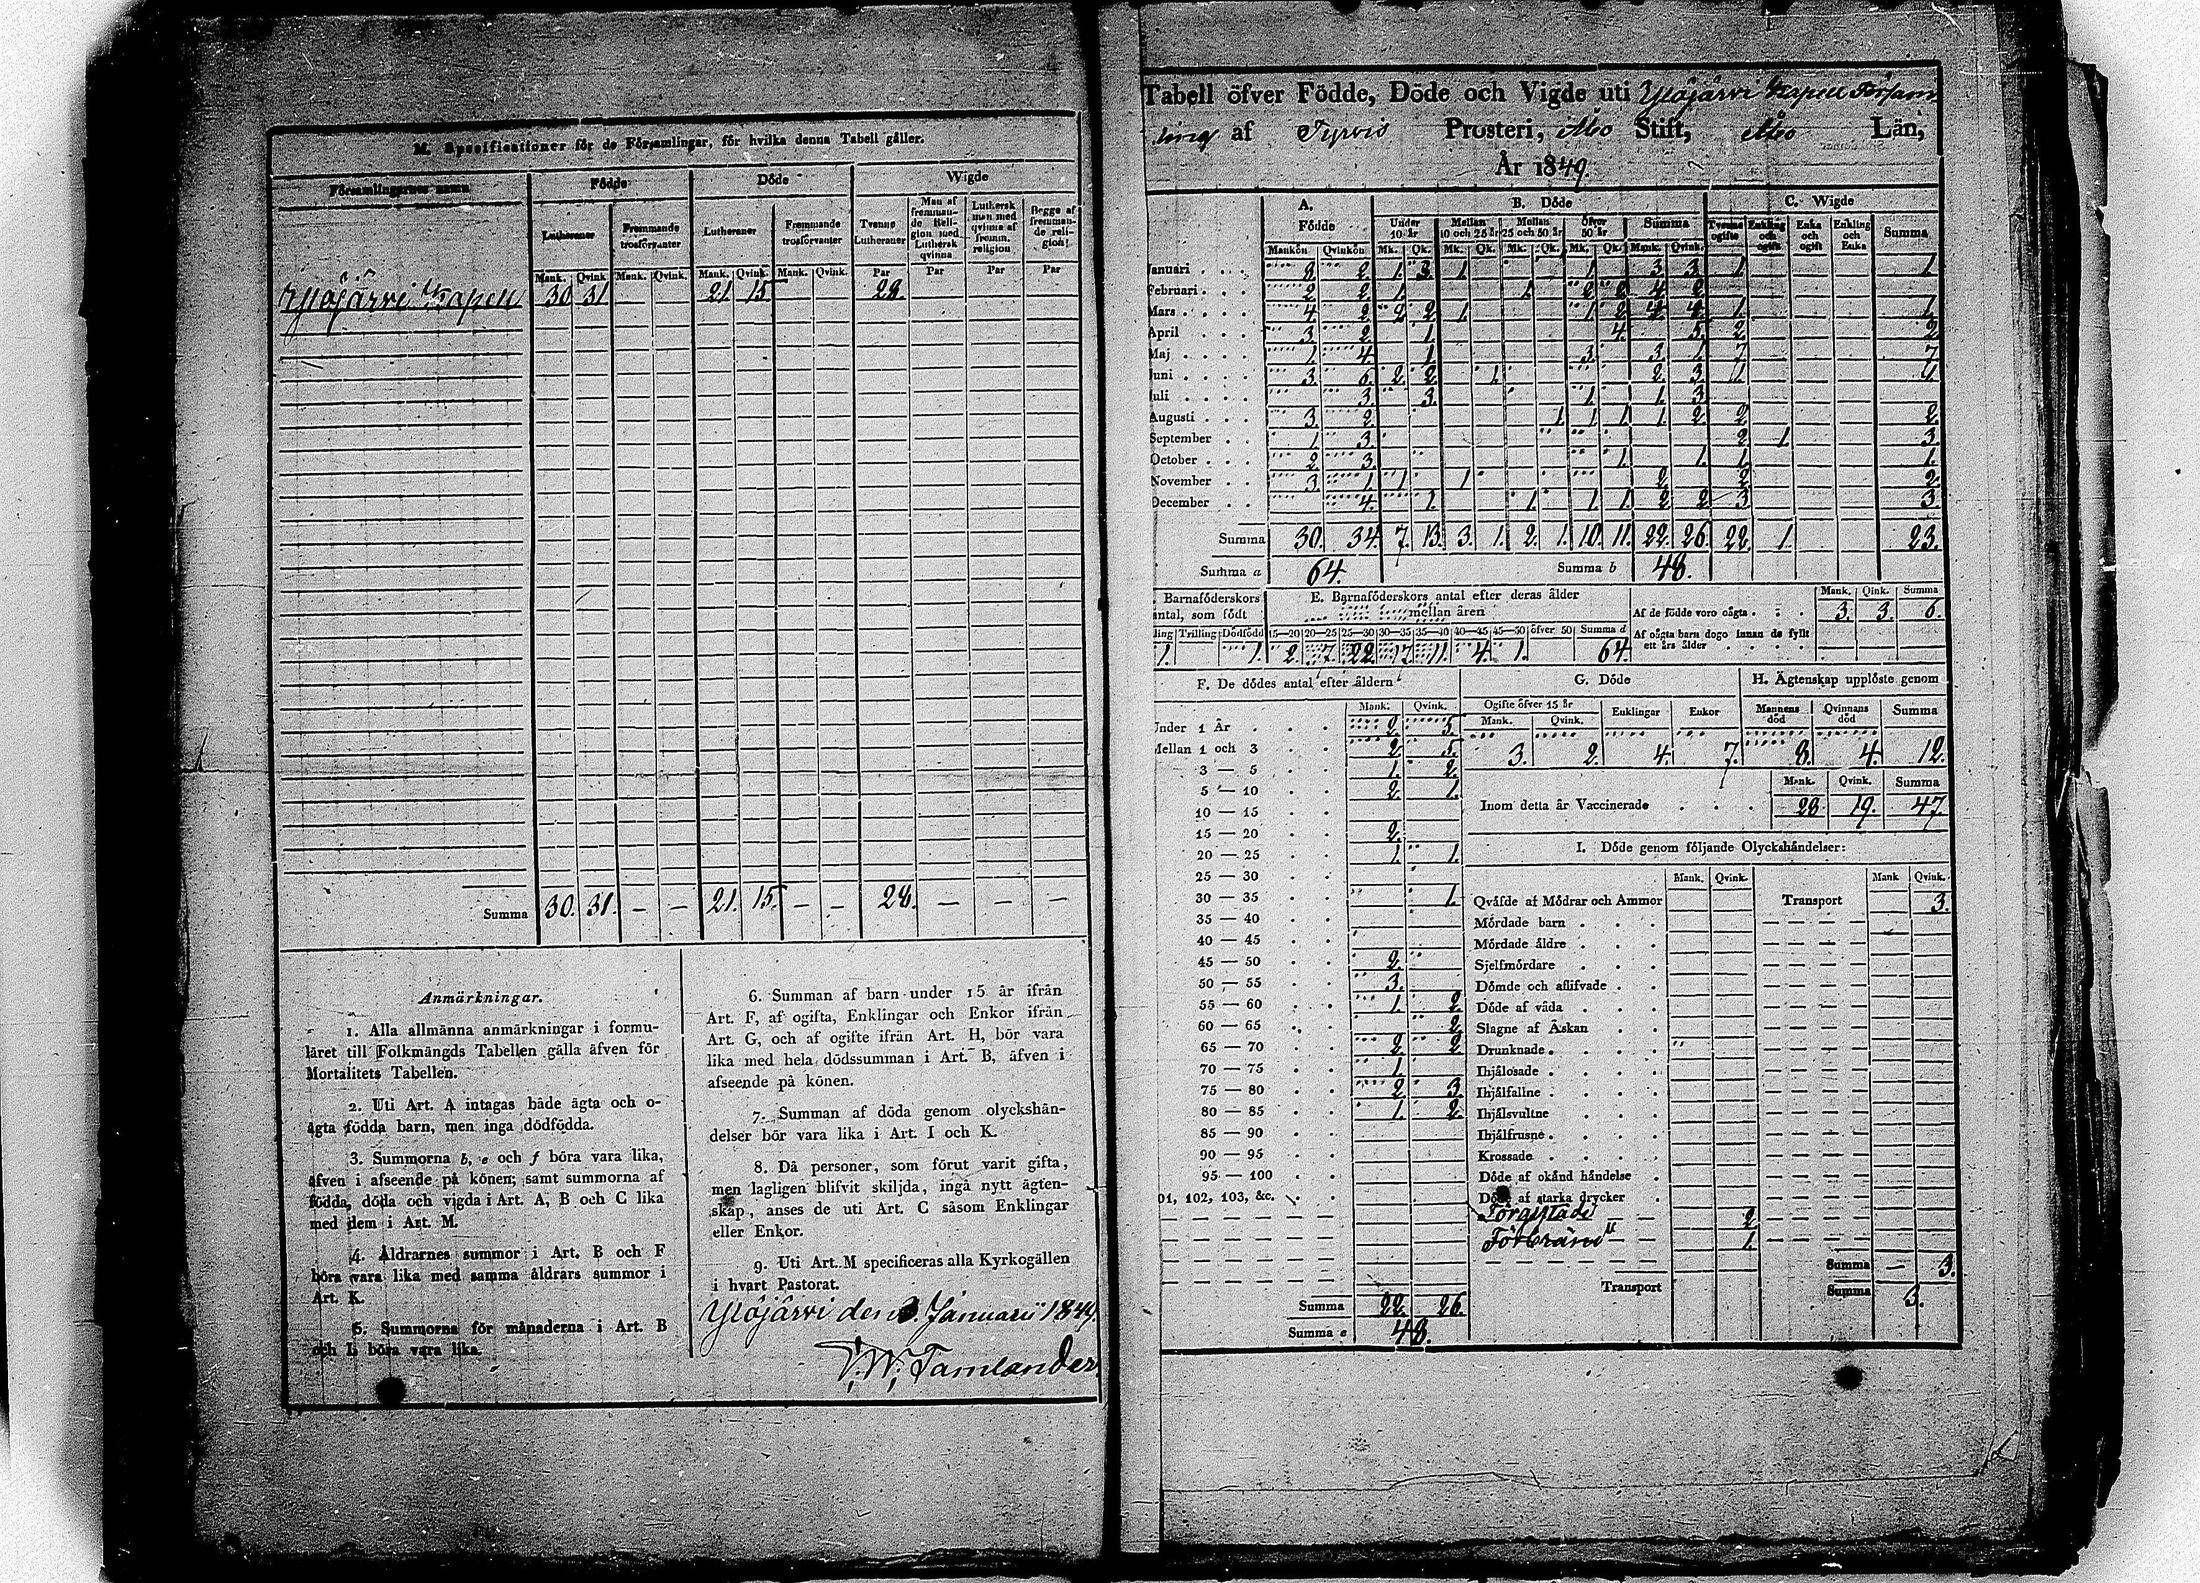 M. Specificationer för de Församlingar, för hvilka denna Tabell gäller.
Församlingarnes namn Födde Döde Wigde
Lutheraner Fremmande trosförvanter Lutheraner Fremmande trosförvanter Tvenne Lutheraner Man af fremmande Religion med Luthersk qvinna Luthersk man med qvinna af fremm. religion Begge af fremmande religion
Mank. Qvink. Mank. Qvink. Mank. Qvink. Mank. Qvink. Par Par Par Par
Ylöjärvi Kapell 30 31 — — 21 15 28.
Summa 30. 31. — — 21. 15. — — 28. — — —
Anmärkningar.
1. Alla allmänna anmärkningar i formu-
läret till Folkmängds Tabellen gälla äfven för
Mortalitets Tabellen.
2. Uti Art. A intagas både ägta och o-
ägta födda barn, men inga dödfödda.
3. Summorna b, e och f böra vara lika,
äfven i afseende på könen; samt summorna af
födda, döda och vigda i Art. A, B och C lika
med dem i Art. M.
4. Åldrarnes summor i Art. B och F
böra vara lika med samma åldrars summor i
Art. K.
5. Summorna för månaderna i Art. B
och L böra vara lika.
6. Summan af barn under 15 år ifrån
Art. F, af ogifta, Enklingar och Enkor ifrån
Art. G, och af ogifte ifrån Art. H, bör vara
lika med hela dödssumman i Art. B, äfven i
afseende på könen.
7. Summan af döda genom olyckshän-
delser bör vara lika i Art. I och K.
8. Då personer, som förut varit gifta,
men lagligen blifvit skiljda, ingå nytt ägten-
skap, anses de uti Art. C såsom Enklingar
eller Enkor.
9. Uti Art. M specificeras alla Kyrkogällen
i hvart Pastorat.
Ylöjärvi den 3. Januarii 1849.
Tamlander
Tabell öfver Födde, Döde och Vigde uti Ylöjärvi Kapell Försam
ling af Tyrvis Prosteri, Åbo Stift, Åbo Län,
År 1849.
A. Födde B. Döde C. Wigde
Under 10 år Mellan 10 och 25 år Mellan 25 och 50 år Öfver 50 år Summa Tvenne ogifte Enkling och ogift Enka och ogift Enkling och Enka Summa
Mankön Qvinkön Mk. Qk. Mk. Qk. Mk. Qk. Mk. Qk. Mank. Qvink.
Januari 8 2. 1. 3. 1 1 3 3 1 1
Februari 2 2. 1 1. 2 2 4 2
Mars 4. 2 2 2 1 1 2 4 4 1 1
April 3 2 1. 4. 5. 2 2
Maj 1. 4. 1 3. 3. 1. 7 7
Juni 3. 6. 2. 2. 1. 2. 3.
Juli 3. 3. 1. 1. 3
Augusti 3. 2. 1. 1. 1. 1. 2. 2 2.
September 1 3. 2 1. 3.
October 2. 3. 1. 1. 1. 1.
November 3. 1. 1 1 2. 2 2.
December 4. 1. 1. 1. 1. 2 2 3 3.
Summa 30. 34. 7. 13. 3. 1. 2. 1. 10. 11. 22. 26. 22. 1. 23.
Summa a 64. Summa b 48.
Barnaföderskors
antal, som födt
E. Barnaföderskors antal efter deras ålder
mellan åren
Mank. Qink. Summa
Af de födde voro oägta . . . 3. 3. 6.
Af oägta barn dogo innan de fyllt
ett års ålder
ling Trilling Dödfödd 15—20 20—25 25—30 30—35 35—40 40—45 45—50 öfver 50 Summa d
1. 1. 2. 7. 22. 17. 11. 4. 1. 64.
F. De dödes antal efter åldern
Mank. Qvink.
Under 1 År 2. 5.
Mellan 1 och 3 2. 5.
3 — 5 1. 2.
5 — 10 2. 1.
10 — 15
15 — 20 2.
20 — 25 1. 1.
25 — 30
30 — 35 1.
35 — 40
40 — 45
45 — 50 2.
50 — 55 3.
55 — 60 1. 2.
60 — 65 2.
65 — 70 2. 2
70 — 75 1.
75 — 80 2. 3.
80 — 85 1. 2.
85 — 90
90 — 95
95 — 100
01, 102, 103, &c.
Summa 22. 26.
Summa e 48.
G. Döde
Ogifte öfver 15 år Enklingar Enkor
Mank. Qvink.
3. 2. 4. 7.
H. Ägtenskap upplöste genom
Mannens död Qvinnans död Summa
8. 4. 12.
Mank. Qvink. Summa
Inom detta år Vaccinerade . . . 28 19. 47.
I. Döde genom följande Olyckshändelser:
Mank. Qvink. Mank Qvink.
Qväfde af Mödrar och Ammor Transport 3.
Mördade barn
Mördade äldre
Sjelfmördare
Dömde och aflifvade
Döde af våda
Slagne af Åskan
Drunknade
Ihjälosade
Ihjälfallne
Ihjälsvultne
Ihjälfrusne
Krossade
Döde af okänd händelse
Döde af starka drycker
Förgiftade 2
Förbränd 1.
Summa — 3.
Transport Summa 3.